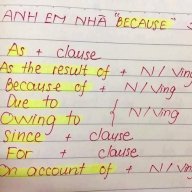 ANH EM NHÀ "BECAUSE"
As + clause
As the result of + N/Ving
Because of + N/Ving
Due to
Owing to { N/Ving
Since + clause
For + clause
On account of + N/Ving